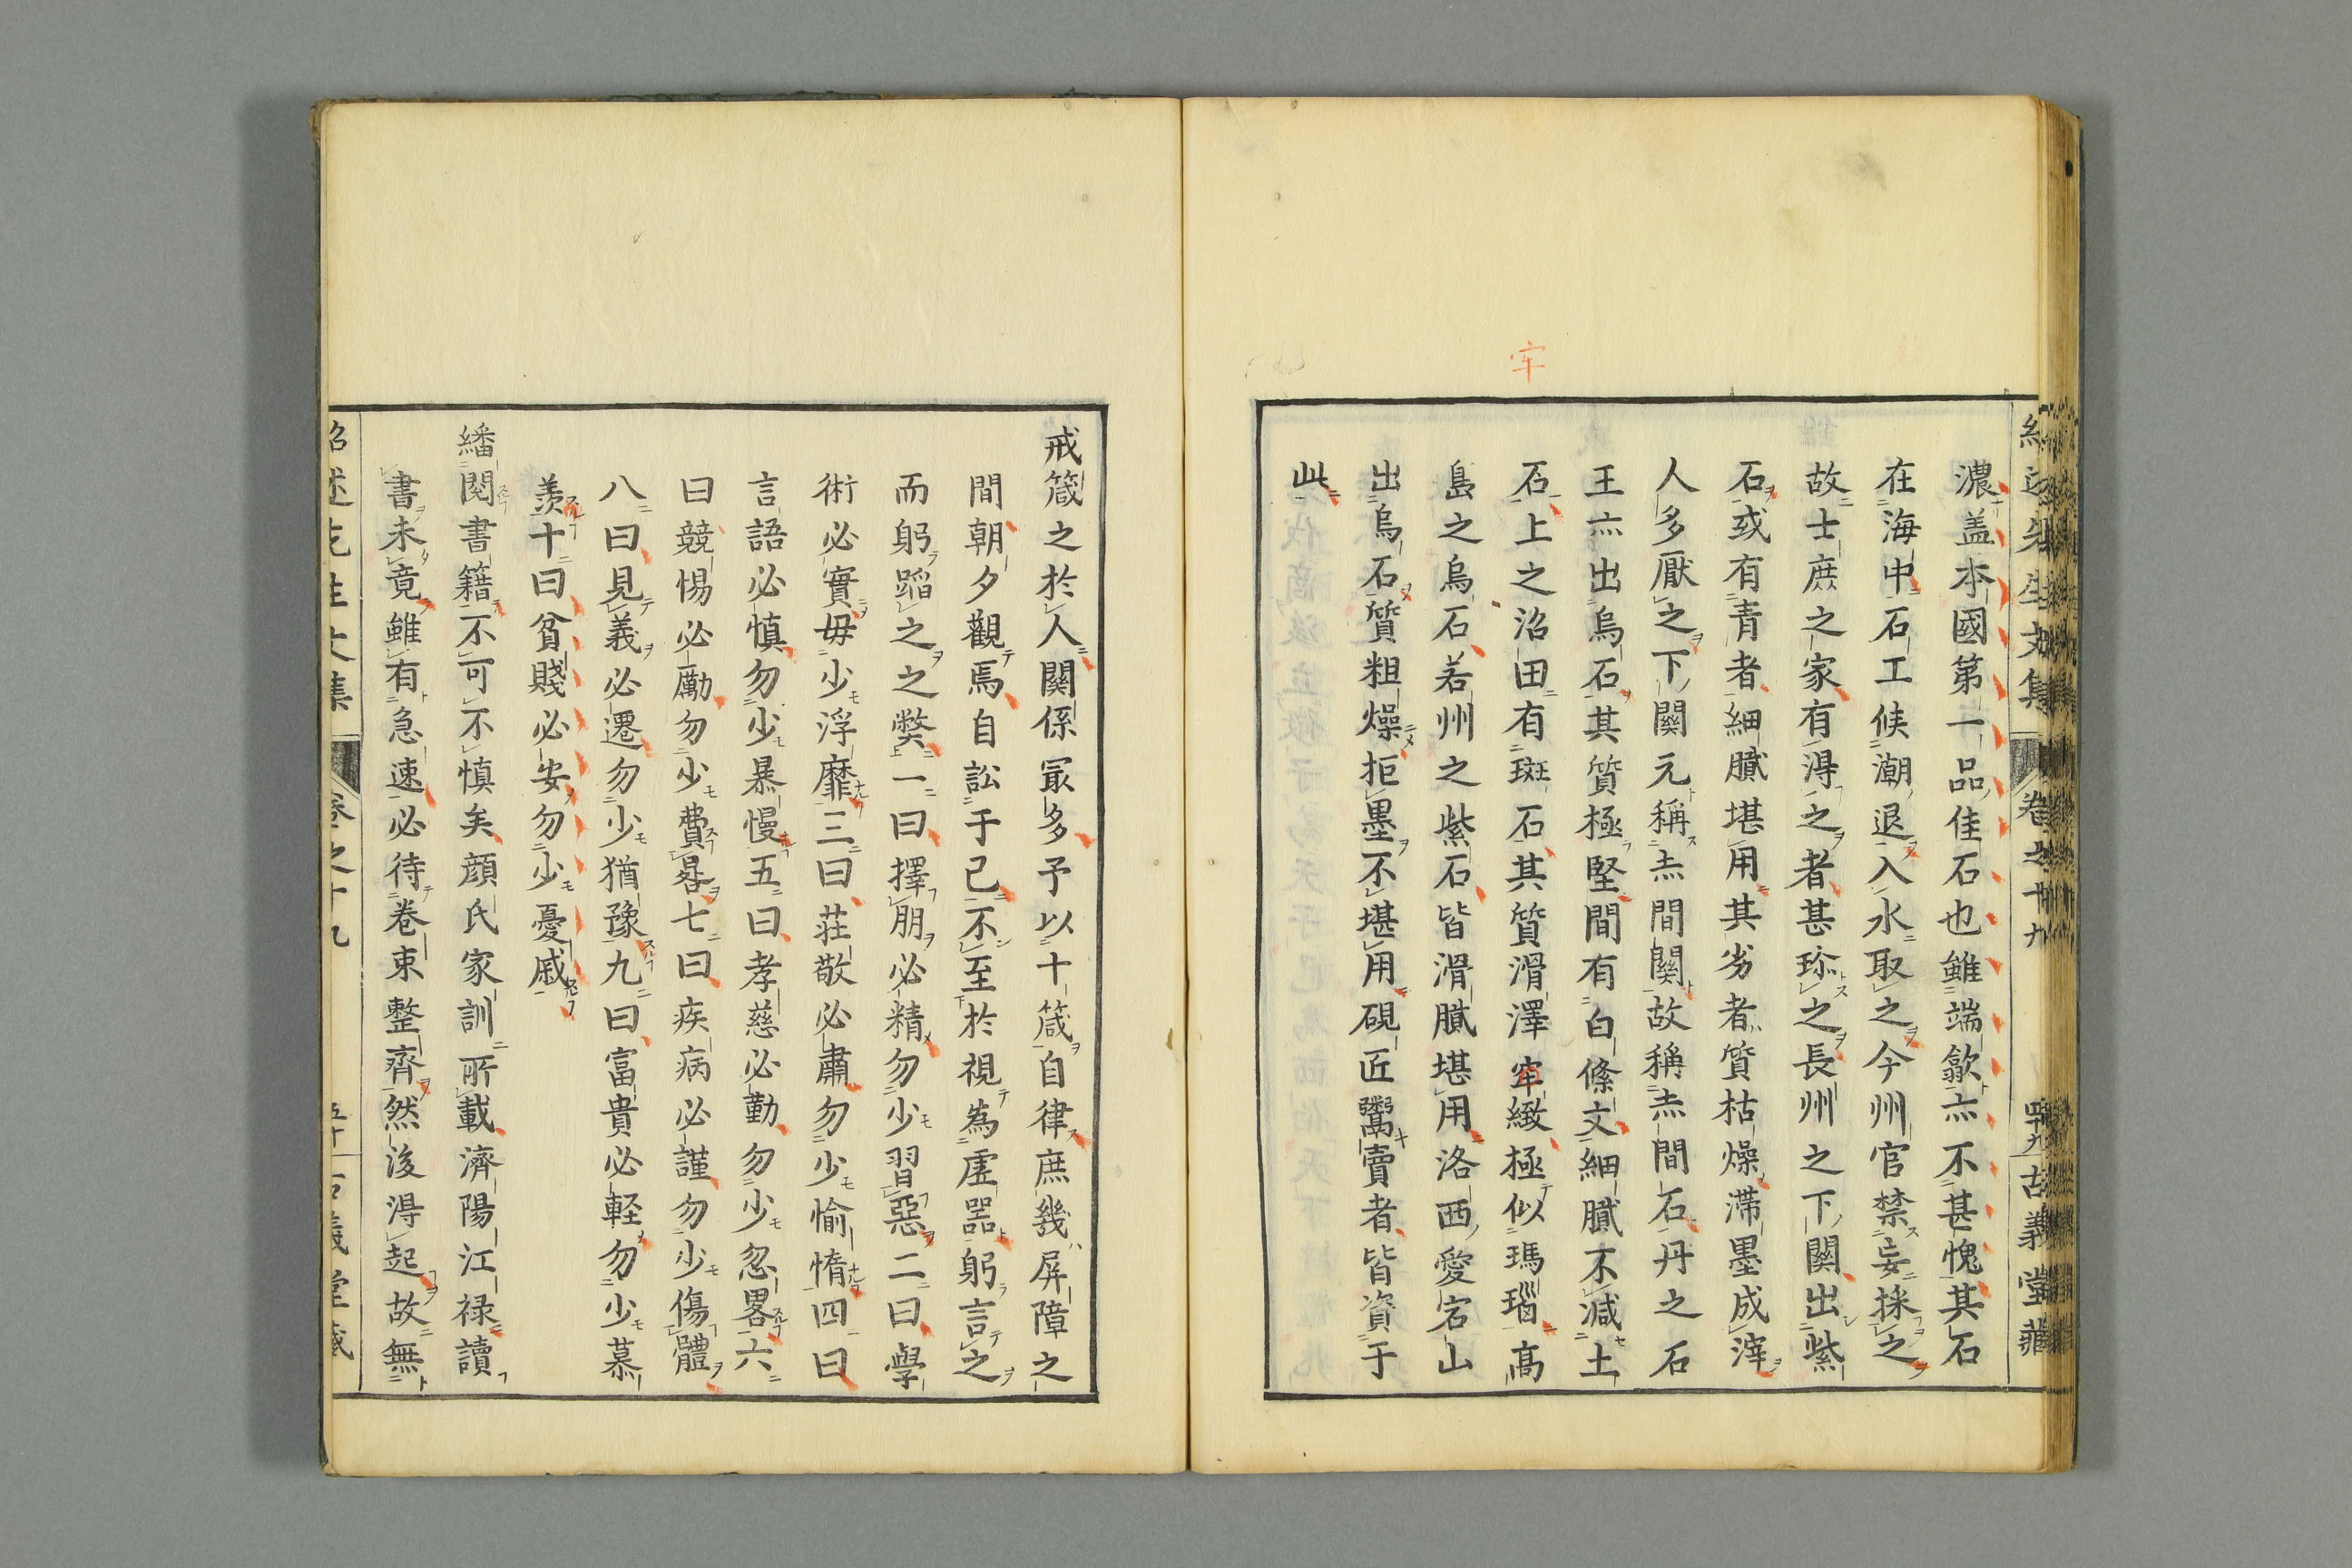 牢
紹述先生文集 卷之十九 四十九 古義堂藏
濃盖本國第一品佳石也雖端歙亦不甚愧其石
在海中石工候潮退入水取之今州官禁妄採之
故士庶之家有得之者甚珍之長州之下關出紫
石或有青者細膩堪用其劣者質枯燥滯墨成滓
人多厭之下關元稱赤間關故稱赤間石丹之石
王亦出烏石其質極堅間有白條文細膩不減土
石上之沼田有斑石其質滑澤牢緻極似瑪瑙高
島之烏石若州之紫石皆滑膩堪用洛西愛宕山
出烏石質粗燥拒墨不堪用硯匠鬻賣者皆資于
此
戒箴之於人關係㝡多予以十箴自律庶幾屏障之
間朝夕觀焉自訟于己不至於視為虛器躬言之
而躬蹈之之獘一曰擇朋必精勿少習惡二曰學
術必實毋少浮靡三曰莊敬必肅勿少愉惰四曰
言語必慎勿少暴慢五曰孝慈必勤勿少忽畧六
曰競惕必勵勿少費晷七曰疾病必謹勿少傷體
八曰見義必遷勿少猶豫九曰富貴必輕勿少慕
羨十曰貧賤必安勿少憂戚
繙閱書籍不可不慎矣顔氏家訓所載濟陽江祿讀
書未竟雖有急速必待卷束整齊然後得起故無
紹述先生文集 卷之十九 五十 古義堂藏